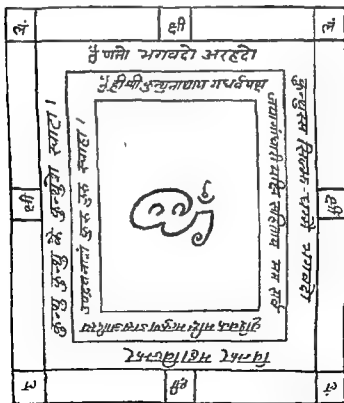 लं
क्षीं
लं
ॐ णमो भगवदो अरहदो
कुन्थुस्स सिज्झ-धम्मे भगवदो
विज्झर महाविज्झर
कुन्थु कुन्थु के कुन्थुदो स्वाहा।
ॐ ह्रीं श्री कुन्थुनाथाय गंधर्वयक्ष
जयागांधारी यक्षि सहिताय मम सर्व
कुरु कुरु स्वाहा।
क्षीं
क्षीं
ॐ
लं
क्षीं
लं